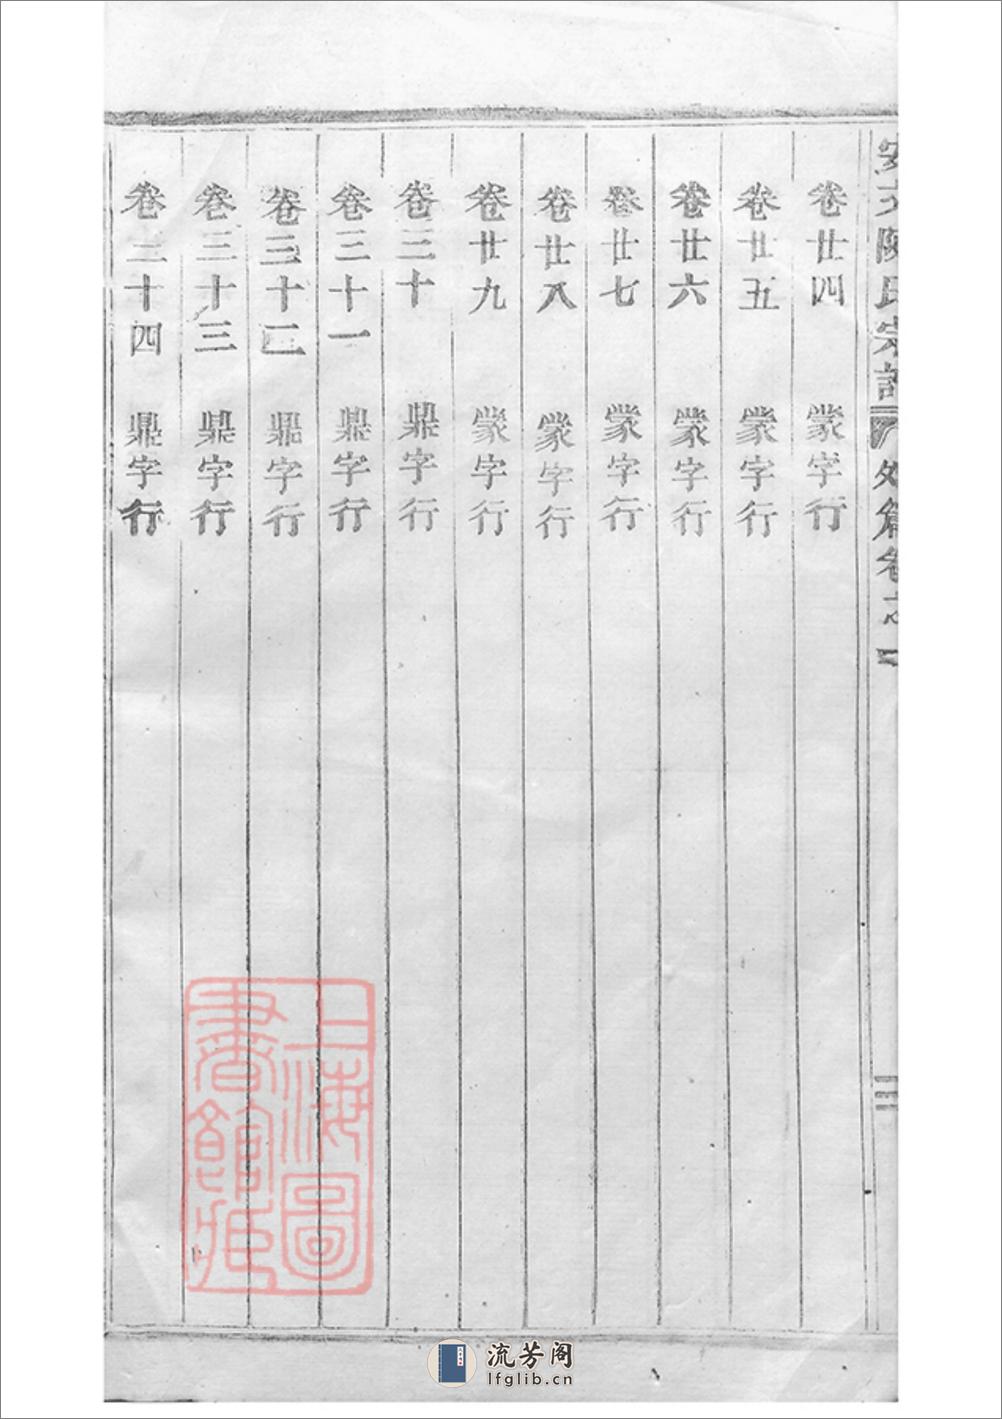 安文陳氏宗譜 外篇卷之一
卷廿四 蒙字行
卷廿五 蒙字行
卷廿六 蒙字行
卷廿七 蒙字行
卷廿八 蒙字行
卷廿九 蒙字行
卷三十 鼎字行
卷三十一 鼎字行
卷三十二 鼎字行
卷三十三 鼎字行
卷三十四 鼎字行
上海圖
書館藏
流芳阁
lfglib.cn